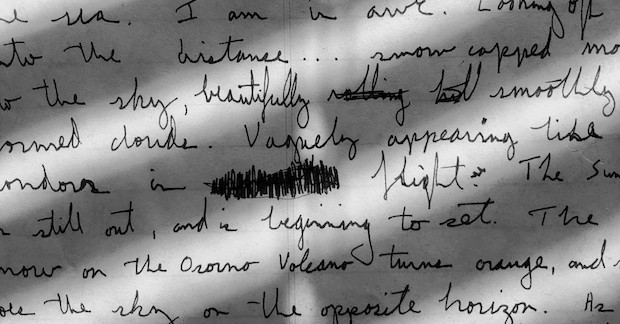 sea. I am in awe. Looking off
into the distance... snow capped mo
the sky, beautifully rolling smoothly
ormed clouds. Vaguely appearing like
ondors in flight. The Sun
still out, and is beginning to set. The
now on the Osorno Volcano turns orange, and
the sky on the opposite horizon. As